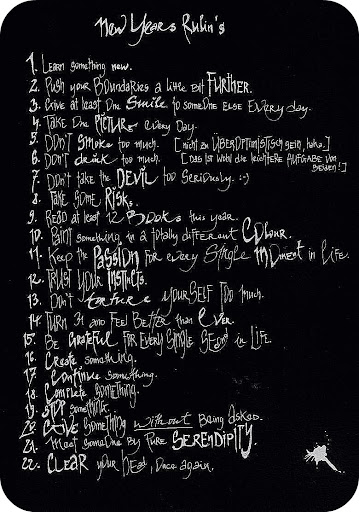 New Years Rulin's
1. Learn something new.
2. Push your Boundaries a little bit FURTHER.
3. Give at least one Smile to someone else Every day.
4. Take one PICTURE every Day.
5. DON'T Smoke too much. [nicht zu ÜBEROPTIMISTISCH sein, haha.]
6. Don't drink too much. [DAS IST WOHL DIE leichtere AUFGABE VON
beiden!]
7. Don't take the DEVIL too Seriously. :-)
8. Take some RISKS.
9. READ at least 12 BOOKS this year.
10. Paint something in a totally different COLOUR.
11. Keep the PASSION for every Single Moment in Life.
12. TRUST YOUR Instincts.
13. Don't torture yourSELF Too much.
14. TURN 31 and Feel BETTER than Ever.
15. Be GRATEFUL FOR EVERY SINGLE Second in Life.
16. Create something.
17. Continue something.
18. Complete something.
19. STOP something.
20. GIVE Something without Being asked.
21. Meet someone By Pure SERENDIPITY.
22. CLEAR your head, once again.